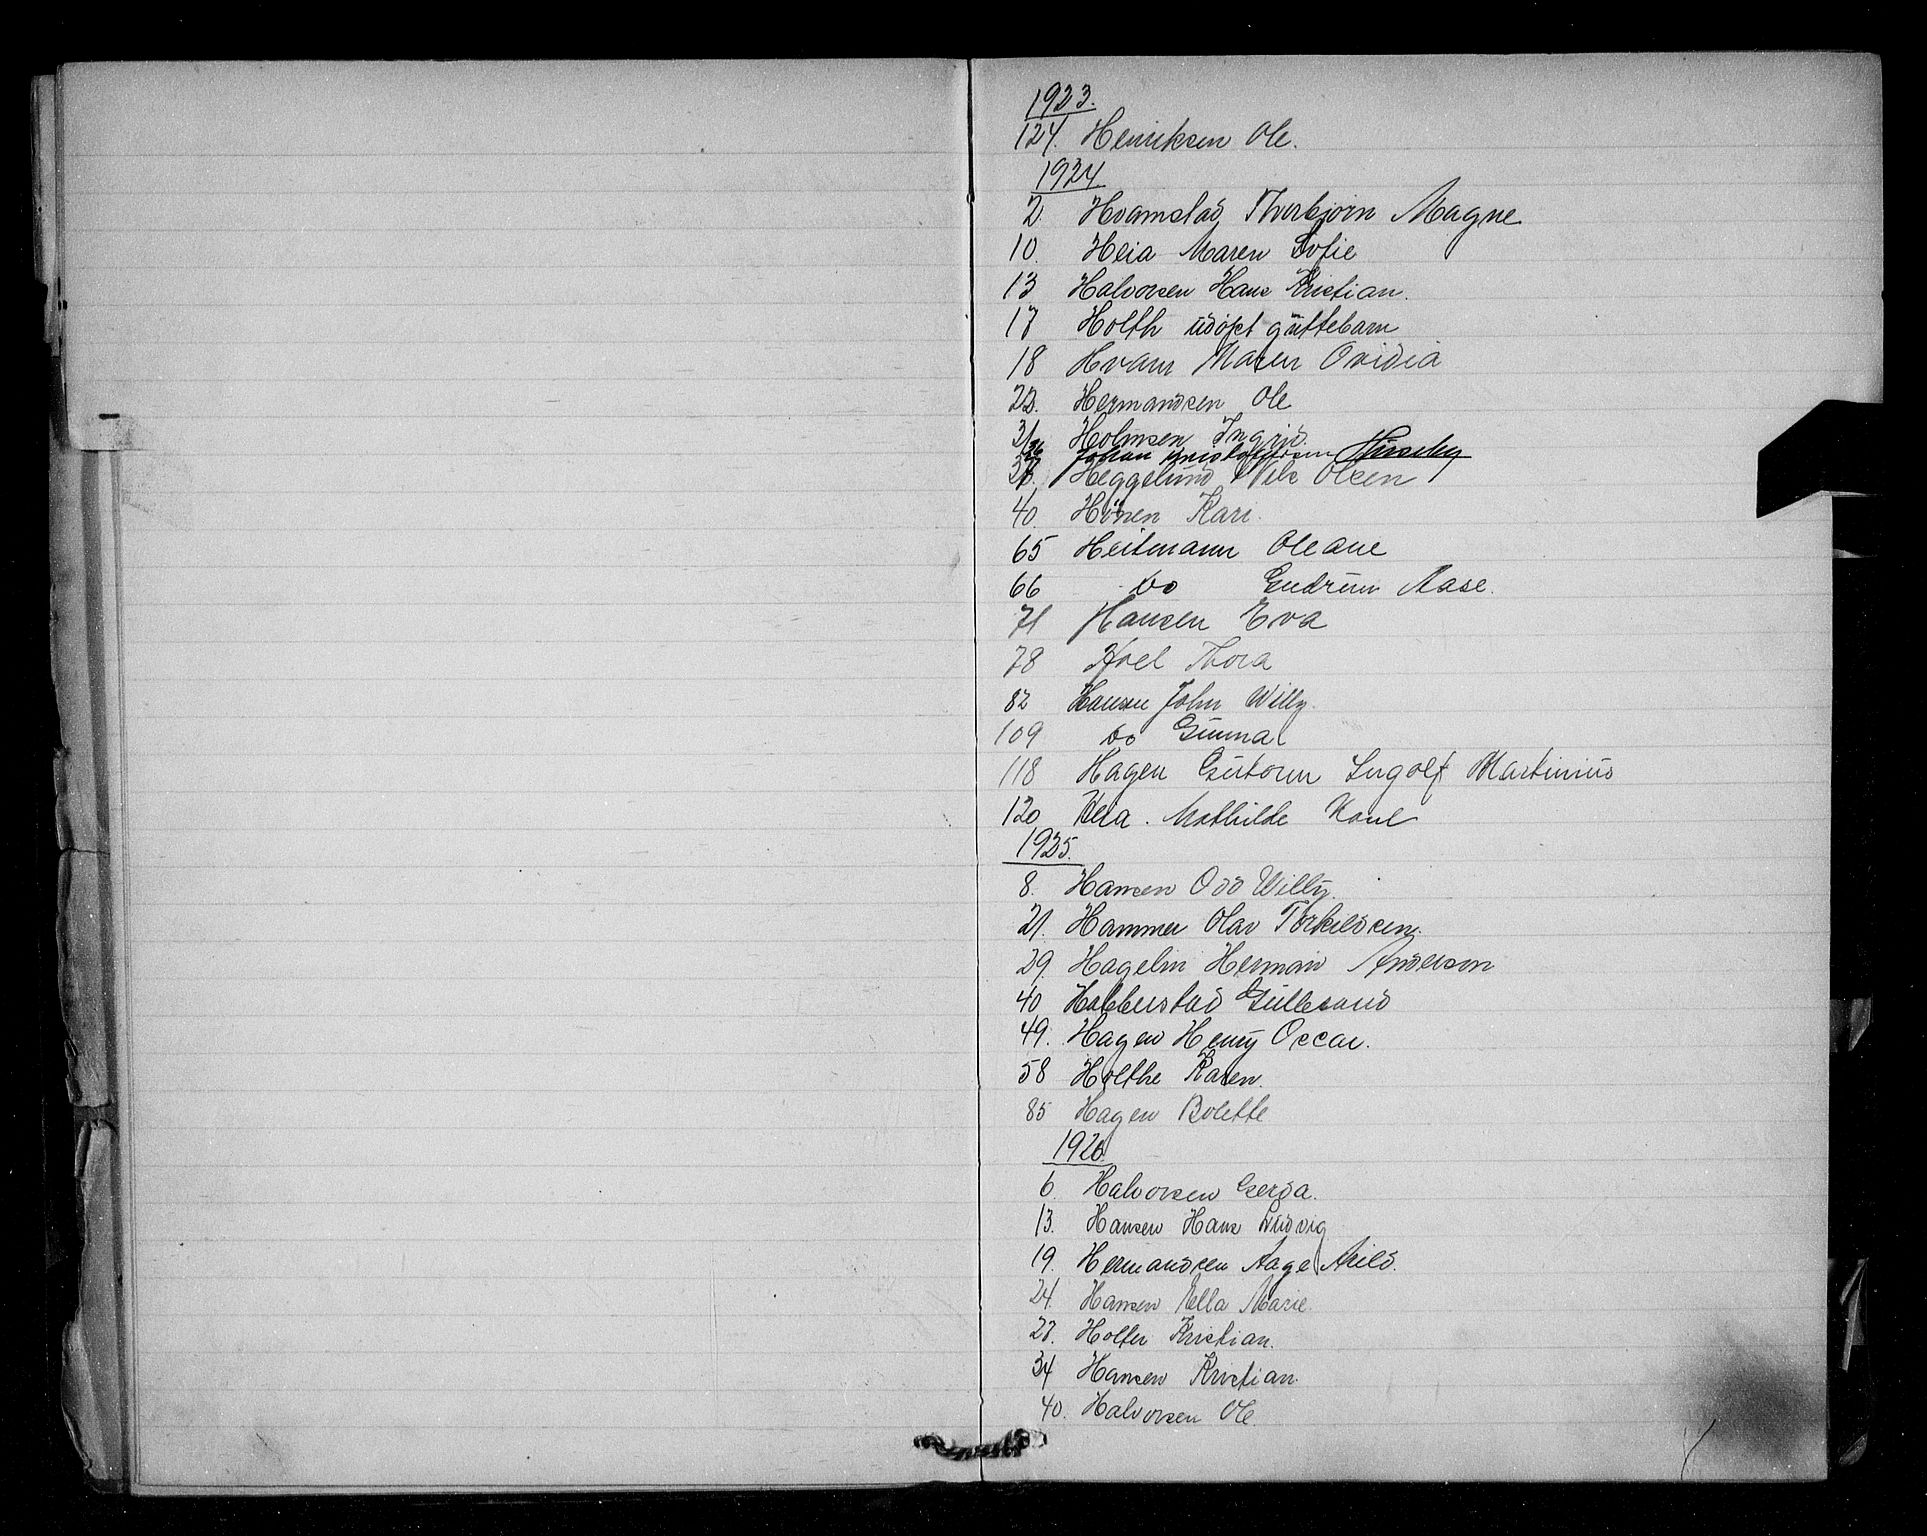 1923.
124. Henriksen Ole.
1924
2. Hvamstad, Thorbjørn Magne
10. Heia Maren Sofie
13 Halvorsen Hans Kristian.
17 Holth udøpt guttebarn
18 Hvam Maren Ovidia
22. Hermandsen Ole
31 Holmsen Ingrid.
36 Johan
Heggelund Nils Olsen
40. Hønen Kari.
65 Heitmann Oleane
66 do Gudrun Aase.
71 Hansen Eva
78 Hoel Thora
82 Hansen John Willy.
109 do Gunnar
118 Hagen Gutorm Ingolf Martinius
120 Heia. Mathilde
1925.
8. Hansen Odd Willy.
21. Hammer Olav Torkildsen.
29. Hagelin Herman Anderson
40 Habberstad Gulbrand
49. Hagen Henry Oscar.
58 Holthe Karen.
85 Hagen Bolette
1926
6. Halvorsen Gerda.
13. Hansen Hans Ludvig
19. Hermandsen Aage Arild.
24. Hansen Ella Marie.
27. Holter Kristian.
34 Hansen Kristian.
40. Halvorsen Ole.